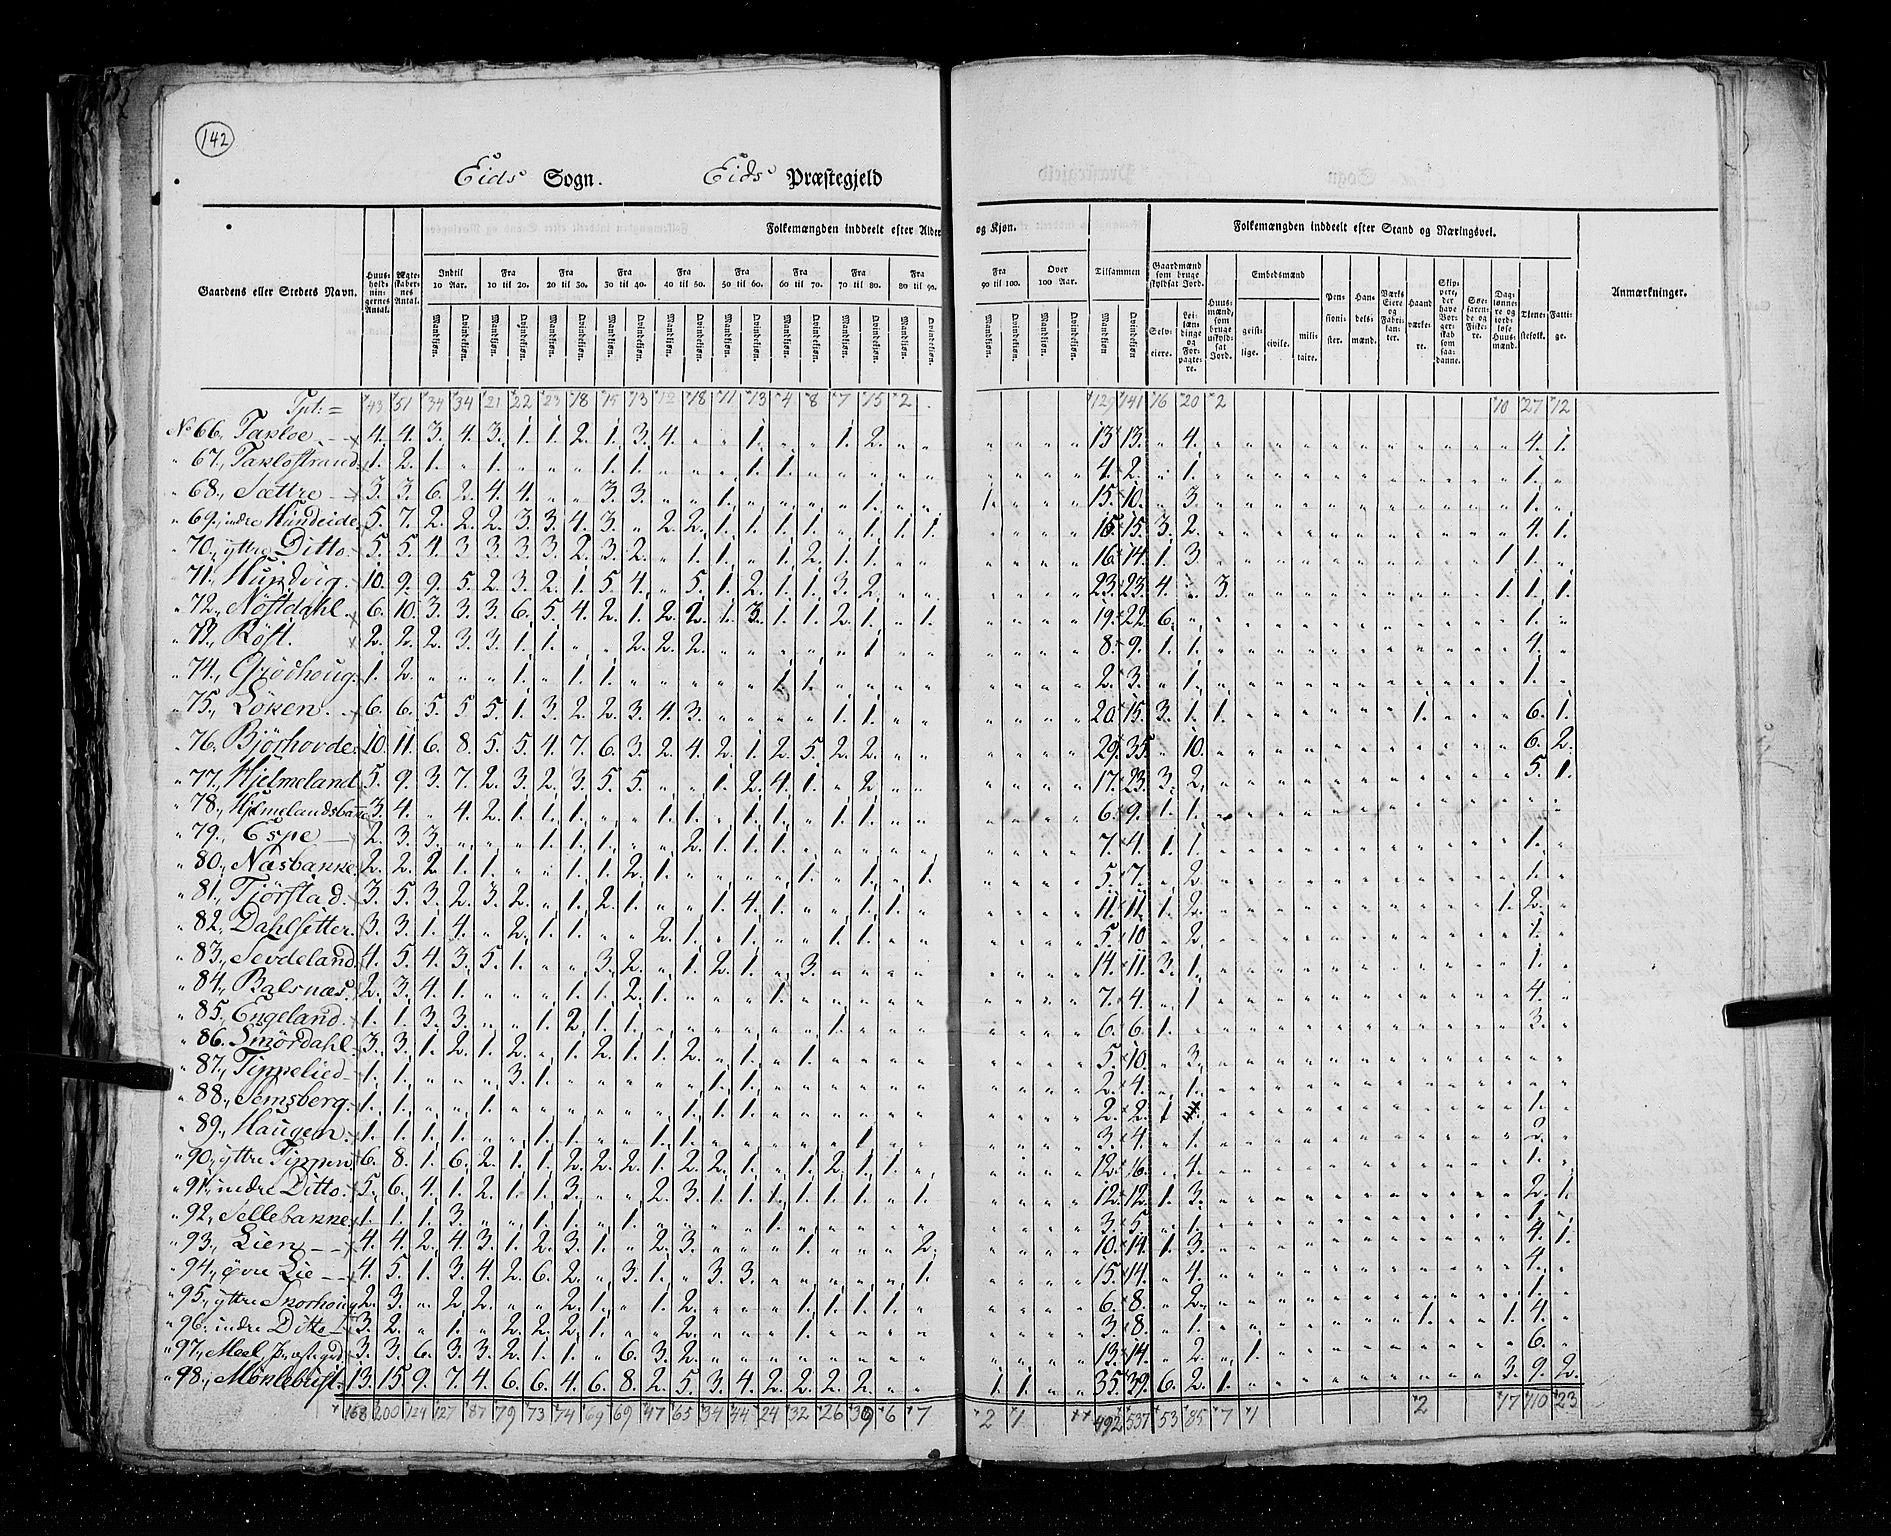 142
Eids Sogn. Eids Præstegjeld
Gaardens eller Steders Navn.
Huusholdningernes Antal.
Ægteskabernes Antal.
Folkemængden inddeelt efter Alder og Kjøn.
Indtil 10 Aar.
Fra 10 til 20.
Fra 20 til 30.
Fra 30 til 40.
Fra 40 til 50.
Fra 50 til 60.
Fra 60 til 70.
Fra 70 til 80.
Fra 80 til 90.
Fra 90 til 100.
Over 100 Aar.
Tilsammen
Mandkiøn. Qvindekiøn.
Folkemængden inddeelt efter Stand og Næringsvei.
Gaardmænd som bruge skyldsat Jord.
Selveiere.
Leilændinge og Forpagtere.
Huusmænd, som bruge uskyldsat Jord.
Embedsmænd
geistlige.
civile.
militaire.
Pensionister.
Handelsmænd.
Værks Eiere og Fabrikanter.
Haandværkere.
Skippere, der have Borgerskab som saadanne.
Søefarende og Fiskere.
Daglønnere og jordløse Huusmænd.
Tienestefolk.
Fattige.
Anmærkninger.
Tpt: = 43 51 34 34 21 22 23 18 15 13 12 18 11 13 4 8 7 15 2 129 141 16 20 2 10 27 12
No 66, Taxloe 4. 4. 3. 4. 3. 1. 1. 2. 1. 3. 4. 1. 1. 2. 13 13. 4. 4. 1.
67, Taxlostrand 1. 2. 1. 1. 1. 1. 1. 1. 4. 2. 1. 1.
68, Sættre 3. 3. 6. 2. 4. 4. 3. 3. 1. 1. 1. 15. 10. 3. 1.
69, indre Hundeide 5. 7. 2. 2. 2. 3. 3. 4. 3. 2. 2. 1. 1. 1. 1. 1. 1. 1. 16. 15. 3. 2. 4. 1.
70, yttre Ditto 5. 5. 4. 3. 3. 3. 3. 2. 3. 2. 1. 1. 1. 2. 1. 1. 16. 14. 1. 3. 1. 1.
71, Hundvig. 10. 9. 9. 5. 2. 3. 2. 1. 5. 4. 5. 1. 2. 1. 1. 3. 2. 23. 23. 4. 3. 1. 1. 1.
72, Nöstdahl 6. 10. 3. 3. 3. 6. 5. 4. 2. 1. 2. 2. 1. 3. 1. 1. 2. 1. 1. 19. 22. 6. 1.
73, Röst. 2. 2. 2. 3. 3. 1. 1. 2. 2. 2. 1. 8. 9. 1. 1. 4.
74, Grödhoug. 1. 2. 1. 1. 1. 1. 1. 2. 3. 1. 1.
75, Löken. 6. 6. 5. 5. 5. 1. 3. 2. 2. 3. 4. 3. 1. 1. 20. 15. 3. 1. 1. 1. 6. 1.
76, Björhovde 10. 11. 6. 8. 5. 5. 4. 7. 6. 3. 2. 4. 2. 1. 2. 5. 2. 2. 29. 35. 10. 6. 2.
77, Hjelmeland 5. 9. 3. 7. 2. 3. 2. 3. 5. 5. 1. 2. 4. 1. 2. 17. 23. 3. 2. 5. 1.
78, Hjelmelandsbakke 3. 4. 4. 2. 1. 1. 1. 1. 1. 1. 1. 1. 1. 6. 9. 1. 1.
79, Espe 2. 3. 3. 1. 1. 1. 2. 1. 1. 1. 7. 4. 1. 1. 1.
80, Næsbakke 2. 2. 2. 1. 1. 1. 1. 2. 1. 1. 1. 1. 5. 7. 2.
81, Tjörstad. 3. 5. 3. 2. 3. 2. 1. 2. 1. 1. 4. 1. 1. 1. 11. 11. 1. 2. 1. 2.
82, Dahlsetter. 3. 3. 1. 4. 2. 1. 1. 2. 1. 1. 1. 1. 5. 10 2. 1.
83, Sevdeland 4. 5. 4. 3. 5. 1. 3. 2. 1. 2. 1. 3. 14. 11. 3. 1. 1.
84, Balsnæs. 2. 3. 4. 1. 1. 1. 2. 1. 1. 7. 4. 1 4.
85, Engeland. 1. 1. 3. 3. 1. 2. 1. 1. 1. 6. 6. 1. 3.
86, Smördahl. 3. 3. 1. 2. 1. 2. 1. 2. 1. 1. 2. 1. 1. 5. 10. 3.
87, Tippelied 1. 1. 3. 1. 1. 1. 2. 4. 1.
88, Semsberg. 1. 1. 1. 1. 1. 1. 2. 2. 1 1.
89, Haugen. 1. 1. 1. 1. 1. 1. 1. 1. 1 3. 4. 1. 2.
90, yttre Tippen 6. 8. 1. 6. 2. 1. 1. 2. 2. 2. 1. 2. 2. 1. 1. 2. 1. 1. 12. 16. 4. 1.
91, indre Ditto. 5. 6. 4. 1. 2. 1. 1. 3. 2. 3. 1. 1. 1. 1. 1. 1. 1. 12. 12. 1. 3. 2. 1.
92, Sellebakke 1. 1. 1. 3. 1. 1. 1. 1. 3. 5. 1. 1.
93, Lien 4. 4. 2. 4. 3. 1. 2. 3. 1. 2. 3. 1. 2. 10. 14. 1. 3. 4. 1.
94, øvre Lie 4. 5. 1. 3. 4. 2. 6. 2. 3. 1. 3. 3. 1. 15. 14. 4. 4.
95, yttre Skorhoug 2. 3. 2. 2. 2. 1. 1. 2. 1. 1. 1. 1. 6. 8. 2. 1.
96. indre Ditto 3. 2. 1. 2. 2. 2. 1. 2. 1. 3. 8. 1. 1. 1. 4.
97, Meel Præstegrd 3. 3. 6. 3. 3. 2. 1. 1. 6. 3. 2. 13. 14. 2. 1. 6.
98, Mönlebust. 13. 15. 9. 7. 4. 6. 6. 4. 6. 8. 2. 5. 3. 4. 2. 2. 2. 2. 1. 1. 35. 39. 6. 2. 1. 3. 9. 2.
168 200 124 127 87 79 73 74 69 69 47 65 34 44 24 32 26 39 6 7 2 1 492 537 53 85 7 1 2 17 110 23